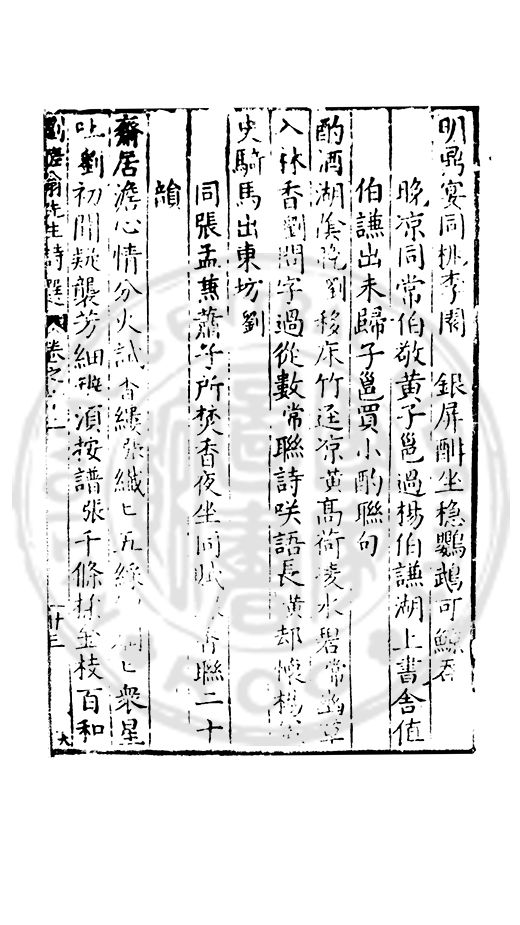 明鼎宴同桃李閣　銀屏酣坐穩鸚鵡可鯨吞
晚凉同常伯敬黃子邕過楊伯謙湖上書舍值
伯謙出未歸子邕買小酌聯句
酌酒湖陰晚劉移床竹逕凉黃高荷凌水碧常幽草
入林香劉問字過從數常聯詩咲語長黃却懷楊
史騎馬出東坊劉
同張孟蕭子所焚香夜坐同賦香聯二十
韻
齋居澹心情分火試香縷張纖七五綵衆星
吐劉初聞疑襲芳細辨須按譜張千條抹金枝百和
劉先生詩選卷之二
十三